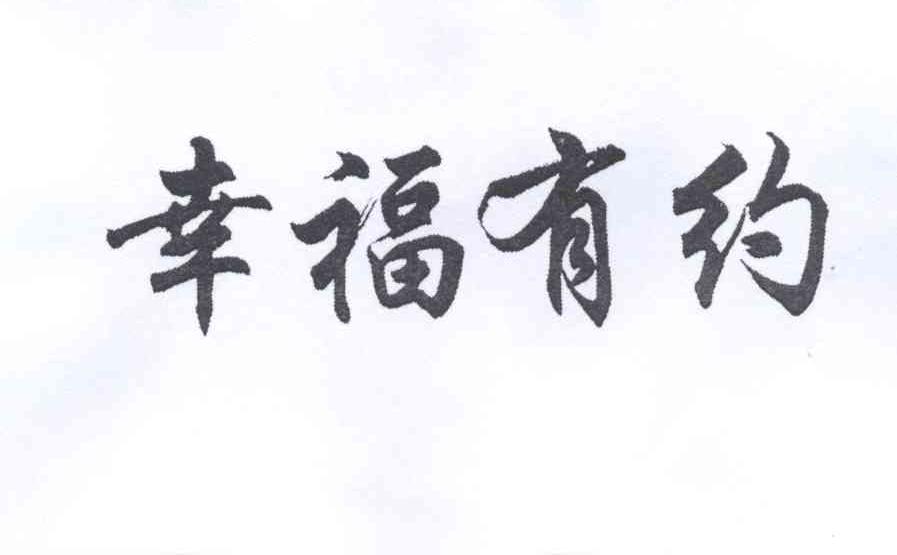 幸福有约